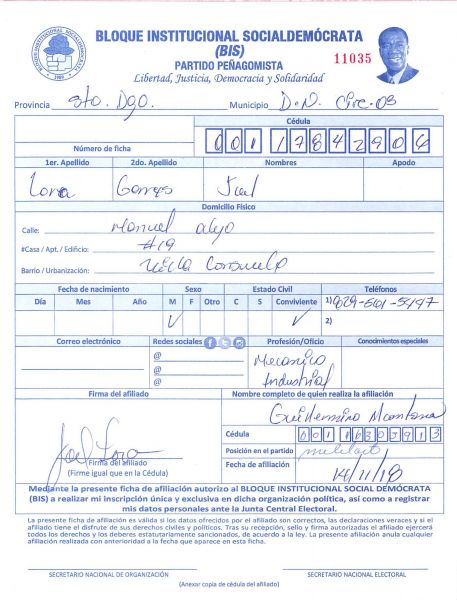 BLOQUE INSTITUCIONAL SOCIALDEMÓCRATA
(BIS)
PARTIDO PEÑAGOMISTA
11035
Libertad, Justicia, Democracia y Solidaridad
Provincia Sto. Dgo. Municipio D.N. Circ-03
Cédula
Número de ficha
1er. Apellido 2do. Apellido Nombres Apodo
Lora
Domicilio Físico
Calle: Manuel
#Casa / Apt. / Edificio: #19
Barrio / Urbanización: Villa Consuelo
Fecha de nacimiento Sexo Estado Civil Teléfonos
Día Mes Año M F Otro C S Conviviente 1)
2)
Correo electrónico Redes sociales Profesión/Oficio Conocimientos especiales
@ Mecanico
@ Industrial
@
Firma del afiliado Nombre completo de quien realiza la afiliación
Cédula
Joel Lora Posición en el partido
Firma del afiliado Fecha de afiliación 14/11/18
(Firme igual que en la Cédula)
Mediante la presente ficha de afiliación autorizo al BLOQUE INSTITUCIONAL SOCIAL DEMÓCRATA
(BIS) a realizar mi inscripción única y exclusiva en dicha organización política, así como a registrar
mis datos personales ante la Junta Central Electoral.
La presente ficha de afiliación es válida si los datos ofrecidos por el afiliado son correctos, las declaraciones veraces y si el afiliado tiene el disfrute de sus derechos civiles y políticos. Tras su recepción, sello y firma autorizadas el afiliado ejercerá
todos los derechos y los deberes estatutariamente sancionados, de acuerdo a la ley. La presente afiliación anula cualquier
afiliación realizada con anterioridad a la fecha que aparece en esta ficha.
SECRETARIO NACIONAL DE ORGANIZACIÓN SECRETARIO NACIONAL ELECTORAL
(Anexar copia de cédula del afiliado)